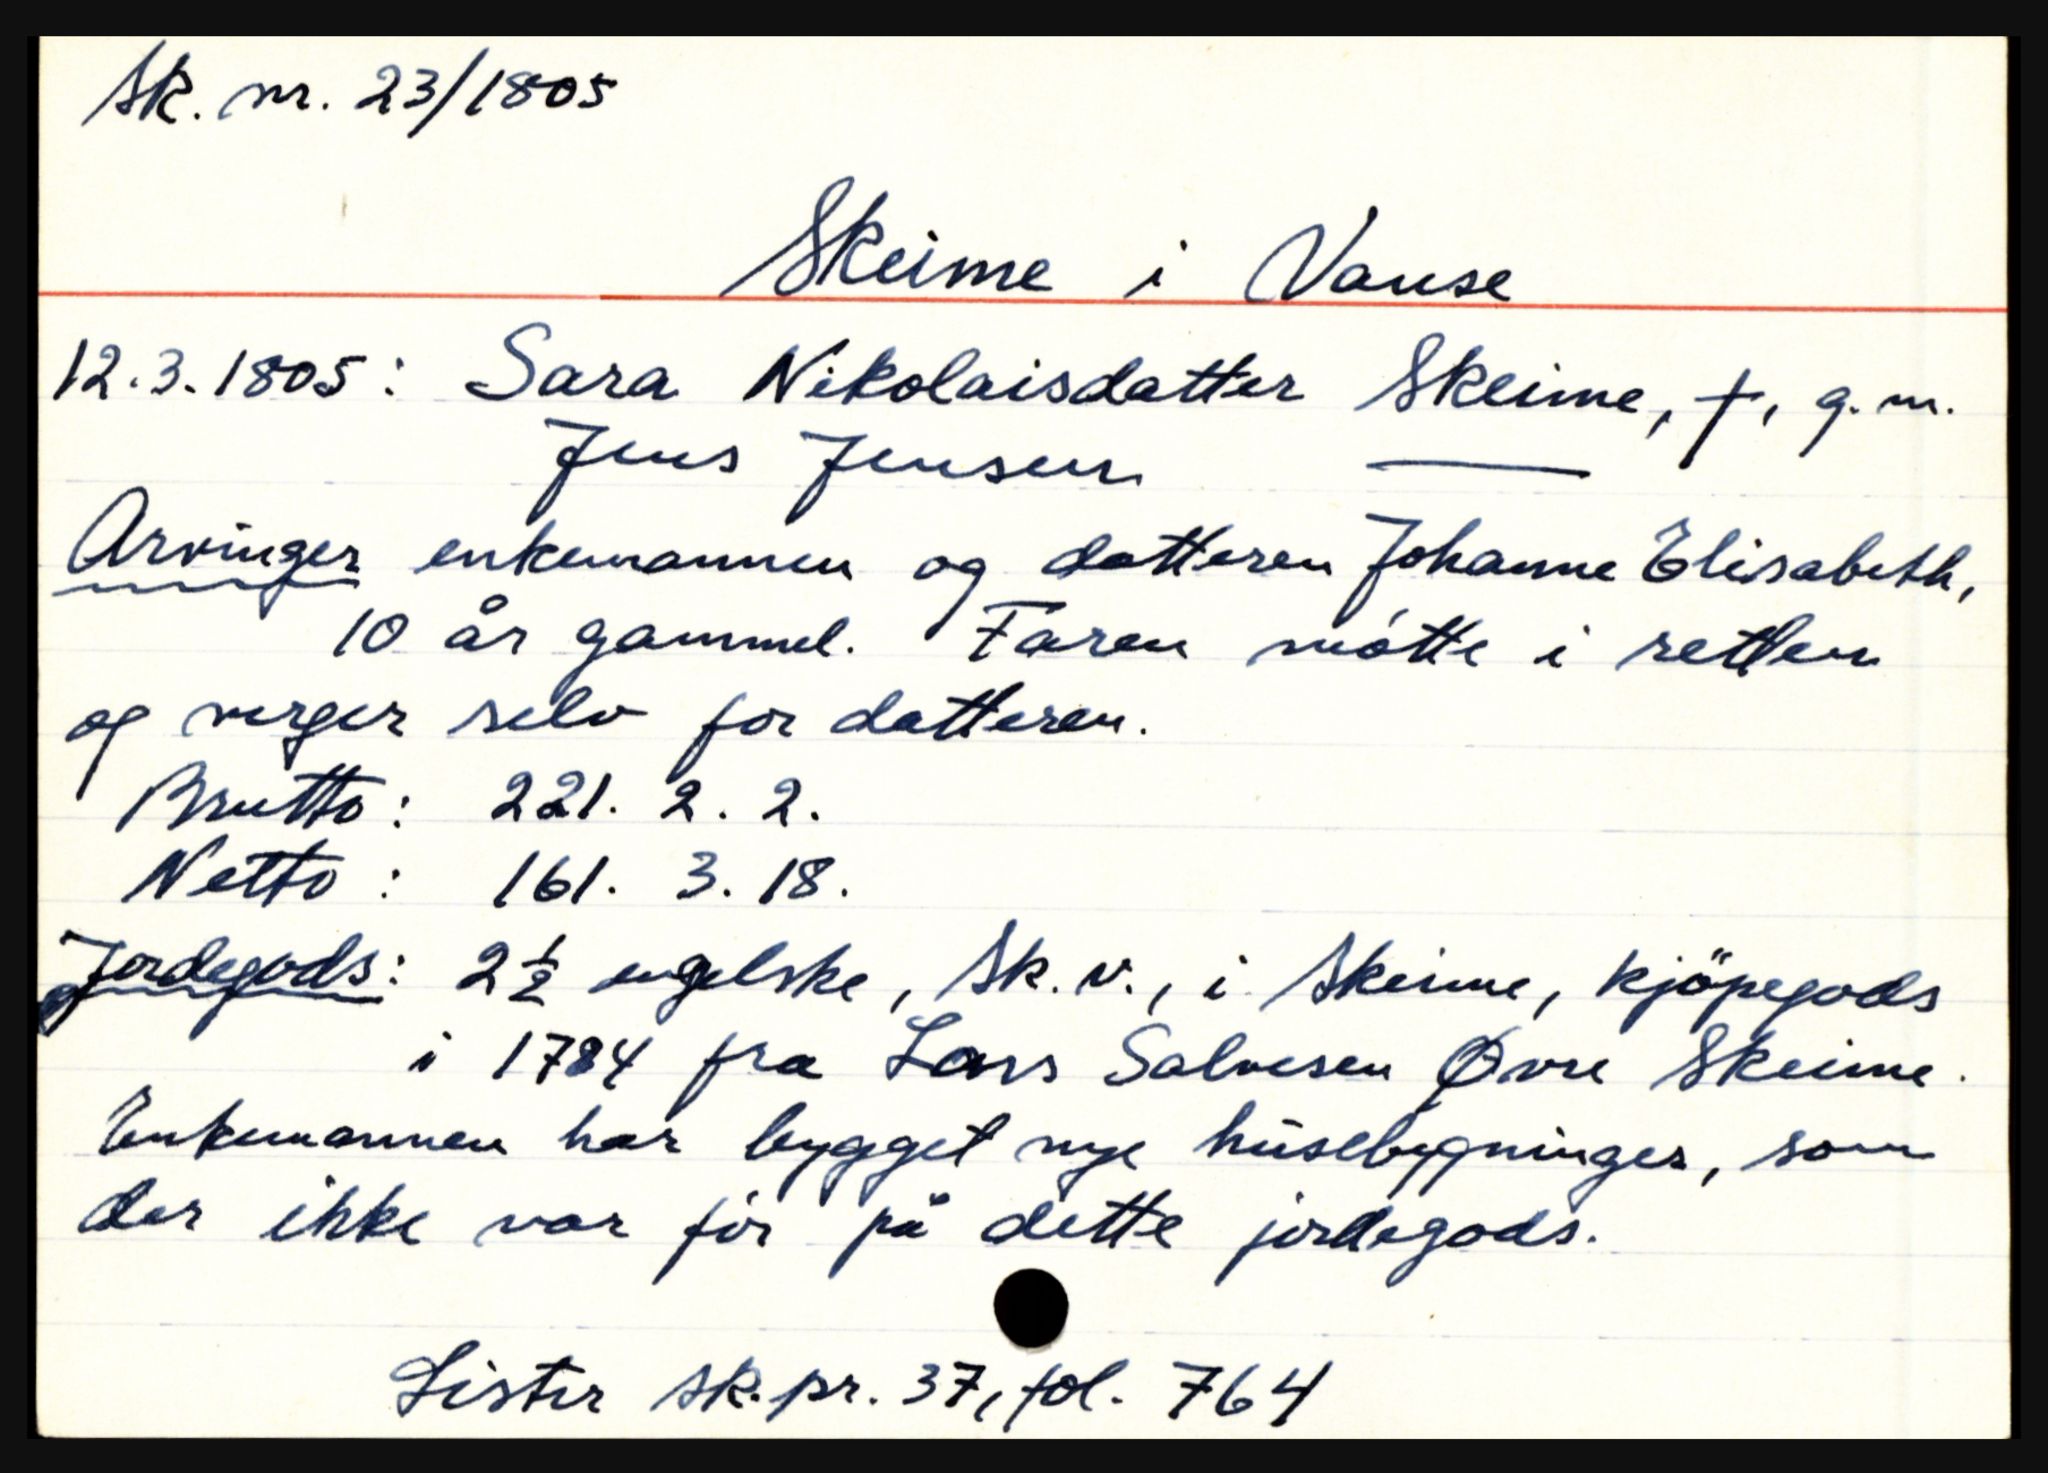 Sk. nr. 23/1805
Skeime i Vanse
12.3.1805: Sara Nikolaisdatter Skeime, †, g.m.
Jens Jensen ———
Arvinger enkemannen og datteren Johanne Elisabeth,
10 år gammel. Faren møtte i retten
og verger selv for datteren.
Brutto: 221. 2. 2.
Netto: 161. 3. 18.
Jordegods: 2½ engelske, sk.v., i Skeime, kjöpegods
i 1784 fra Lars Salvesen Øvre Skeime.
Enkemannen har bygget nye húsebygninger, som
der ikke var för på dette jordegods.
Lister sk.pr. 37, fol. 764